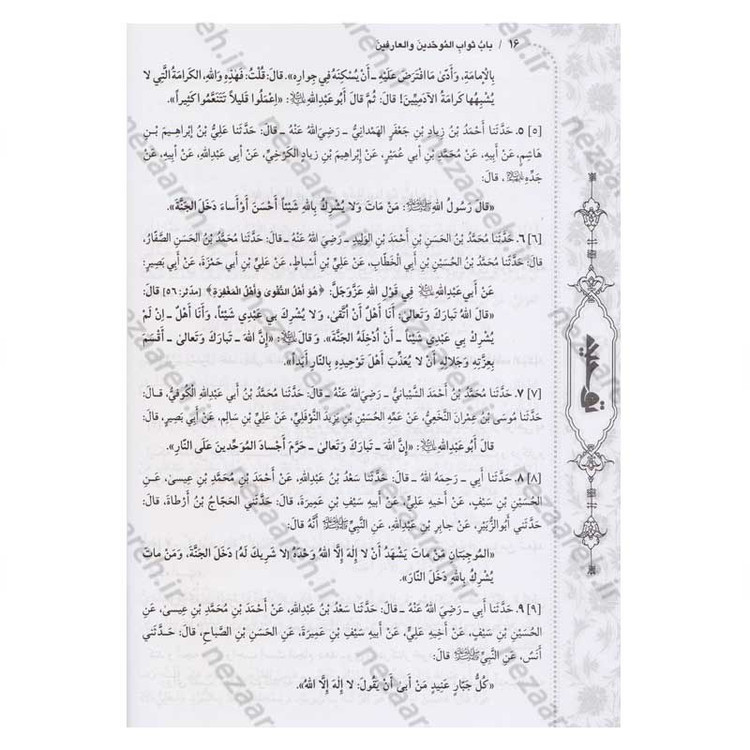 ۱۶ / بابُ ثوابِ المُوحّدينَ والعارفينَ
بِالإمامَةِ، وَأَدّىٰ مَا افْتَرَضَ عَلَيْهِ ـ أَنْ يُسْكِنَهُ في جِوارِهِ». قالَ: قُلْتُ: فَهٰذِهِ وَاللهِ، الكَرامَةُ الَّتي لا
يُشْبِهُها كَرامَةُ الآدَمِيِّينَ! قالَ: ثُمَّ قالَ أَبُو عَبْدِاللهِ ﷷ: «اِعْمَلُوا قَليلاً تَتَنَعَّمُوا كَثيراً».
[٥] ٥. حَدَّثَنا أَحْمَدُ بْنُ زِيادِ بْنِ جَعْفَرٍ الهَمْدانِيُّ ـ رَضِيَ اللهُ عَنْهُ ـ قالَ: حَدَّثَنا عَلِيُّ بْنُ إبْراهـيمَ بْـنِ
هاشِمٍ، عَنْ أَبيهِ، عَنْ مُحَمَّدِ بْنِ أَبي عُمَيْرٍ، عَنْ إبْراهيمَ بْنِ زِيادٍ الكَرْخِيِّ، عَنْ أَبي عَبْدِاللهِ، عَنْ أَبيهِ، عَنْ
جَدِّهِ ﷷ، قالَ:
«قالَ رَسُولُ اللهِ ﷺ: مَنْ ماتَ وَلا يُشْرِكُ بِاللهِ شَيْئاً أَحْسَنَ أَوْ أَساءَ دَخَلَ الجَنَّةَ».
[٦] ٦. حَدَّثَنا مُحَمَّدُ بْنُ الحَسَنِ بْنِ أَحْمَدَ بْنِ الوَليدِ ـ رَضِيَ اللهُ عَنْهُ ـ قالَ: حَدَّثَنا مُحَمَّدُ بْنُ الحَسَنِ الصَّفّارُ،
قالَ: حَدَّثَنا مُحَمَّدُ بْنُ الحُسَيْنِ بْنِ أَبي الخَطّابِ، عَنْ عَلِيِّ بْنِ أَسْباطٍ، عَنْ عَلِيِّ بْنِ أَبي حَمْزَةَ، عَنْ أَبي بَصيرٍ:
عَنْ أَبي عَبْدِاللهِ ﷷ في قَوْلِ اللهِ عَزَّوَجَلَّ: ﴿هُوَ أَهْلُ التَّقْوىٰ وَأَهْلُ المَغْفِرَةِ﴾ (مدّثر: ٥٦) قالَ:
«قالَ اللهُ تَبارَكَ وَتَعالىٰ: أَنا أَهْلٌ أَنْ أُتَّقىٰ، وَلا يُشْرِكَ بي عَبْدي شَيْئاً، وَأَنا أَهْلٌ ـ إنْ لَمْ
يُشْرِكْ بي عَبْدي شَيْئاً ـ أَنْ أُدْخِلَهُ الجَنَّةَ». وَقالَ ﷷ: «إنَّ اللهَ ـ تَبارَكَ وَتَعالىٰ ـ أَقْسَمَ
بِعِزَّتِهِ وَجَلالِهِ أَنْ لا يُعَذِّبَ أَهْلَ تَوْحيدِهِ بِالنّارِ أَبَداً».
[٧] ٧. حَدَّثَنا مُحَمَّدُ بْنُ أَحْمَدَ الشَّيْبانيُّ ـ رَضِيَ اللهُ عَنْهُ ـ قالَ: حَدَّثَنا مُحَمَّدُ بْنُ أَبي عَبْدِاللهِ الكُوفيُّ، قـالَ:
حَدَّثَنا مُوسَى بْنُ عِمْرانَ النَّخَعِيُّ، عَنْ عَمِّهِ الحُسَيْنِ بْنِ يَزيدَ النَّوْفَليِّ، عَنْ عَلِيِّ بْنِ سالِمٍ، عَنْ أَبي بَصيرٍ، قالَ:
قالَ أَبُو عَبْدِاللهِ ﷷ: «إنَّ اللهَ ـ تَبارَكَ وَتَعالىٰ ـ حَرَّمَ أَجْسادَ المُوَحِّدينَ عَلَى النّارِ».
[٨] ٨. حَدَّثَنا أَبي ـ رَحِمَهُ اللهُ ـ قالَ: حَدَّثَنا سَعْدُ بْنُ عَبْدِاللهِ، عَنْ أَحْمَدَ بْنِ مُحَمَّدِ بْنِ عيسىٰ، عَـنِ
الحُسَيْنِ بْنِ سَيْفٍ، عَنْ أَخيهِ عَلِيٍّ، عَنْ أَبيهِ سَيْفِ بْنِ عَميرَةَ، قالَ: حَدَّثَني الحَجّاجُ بْنُ أَرْطاةَ، قالَ:
حَدَّثَني أَبُو الزُّبَيْرِ، عَنْ جابِرِ بْنِ عَبْدِاللهِ، عَنِ النَّبِيِّ ﷺ أَنَّهُ قالَ:
«المُوجِبَتانِ مَنْ ماتَ يَشْهَدُ أَنْ لا إلٰهَ إلَّا اللهُ وَحْدَهُ [لا شَريكَ لَهُ] دَخَلَ الجَنَّةَ، وَمَنْ ماتَ
يُشْرِكُ بِاللهِ دَخَلَ النّارَ».
[٩] ٩. حَدَّثَنا أَبي ـ رَضِيَ اللهُ عَنْهُ ـ قالَ: حَدَّثَنا سَعْدُ بْنُ عَبْدِاللهِ، عَنْ أَحْمَدَ بْنِ مُحَمَّدِ بْنِ عيسىٰ، عَنِ
الحُسَيْنِ بْنِ سَيْفٍ، عَنْ أَخيهِ عَلِيٍّ، عَنْ أَبيهِ سَيْفِ بْنِ عَميرَةَ، عَنِ الحَسَنِ بْنِ الصَّباحِ، قالَ: حَـدَّثَني
أَنَسٌ، عَنِ النَّبِيِّ ﷺ قالَ:
«كُلُّ جَبّارٍ عَنيدٍ مَنْ أَبىٰ أَنْ يَقُولَ: لا إلٰهَ إلَّا اللهُ».
توحید
nezaareh.ir